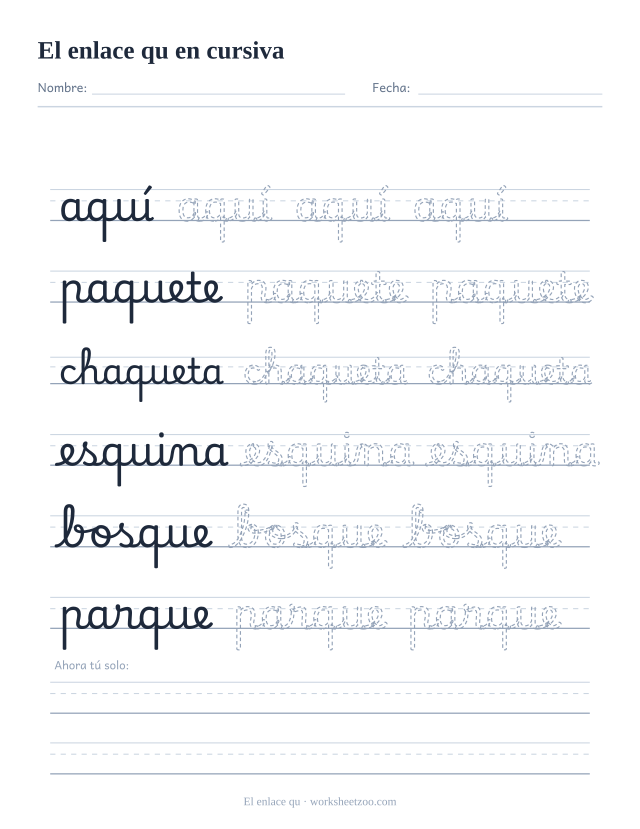 El enlace qu en cursiva
Nombre: Fecha:
aquí aquí aquí aquí
paquete paquete paquete
chaqueta chaqueta chaqueta
esquina esquina esquina
bosque bosque bosque
parque parque parque
Ahora tú solo:
El enlace qu · worksheetzoo.com